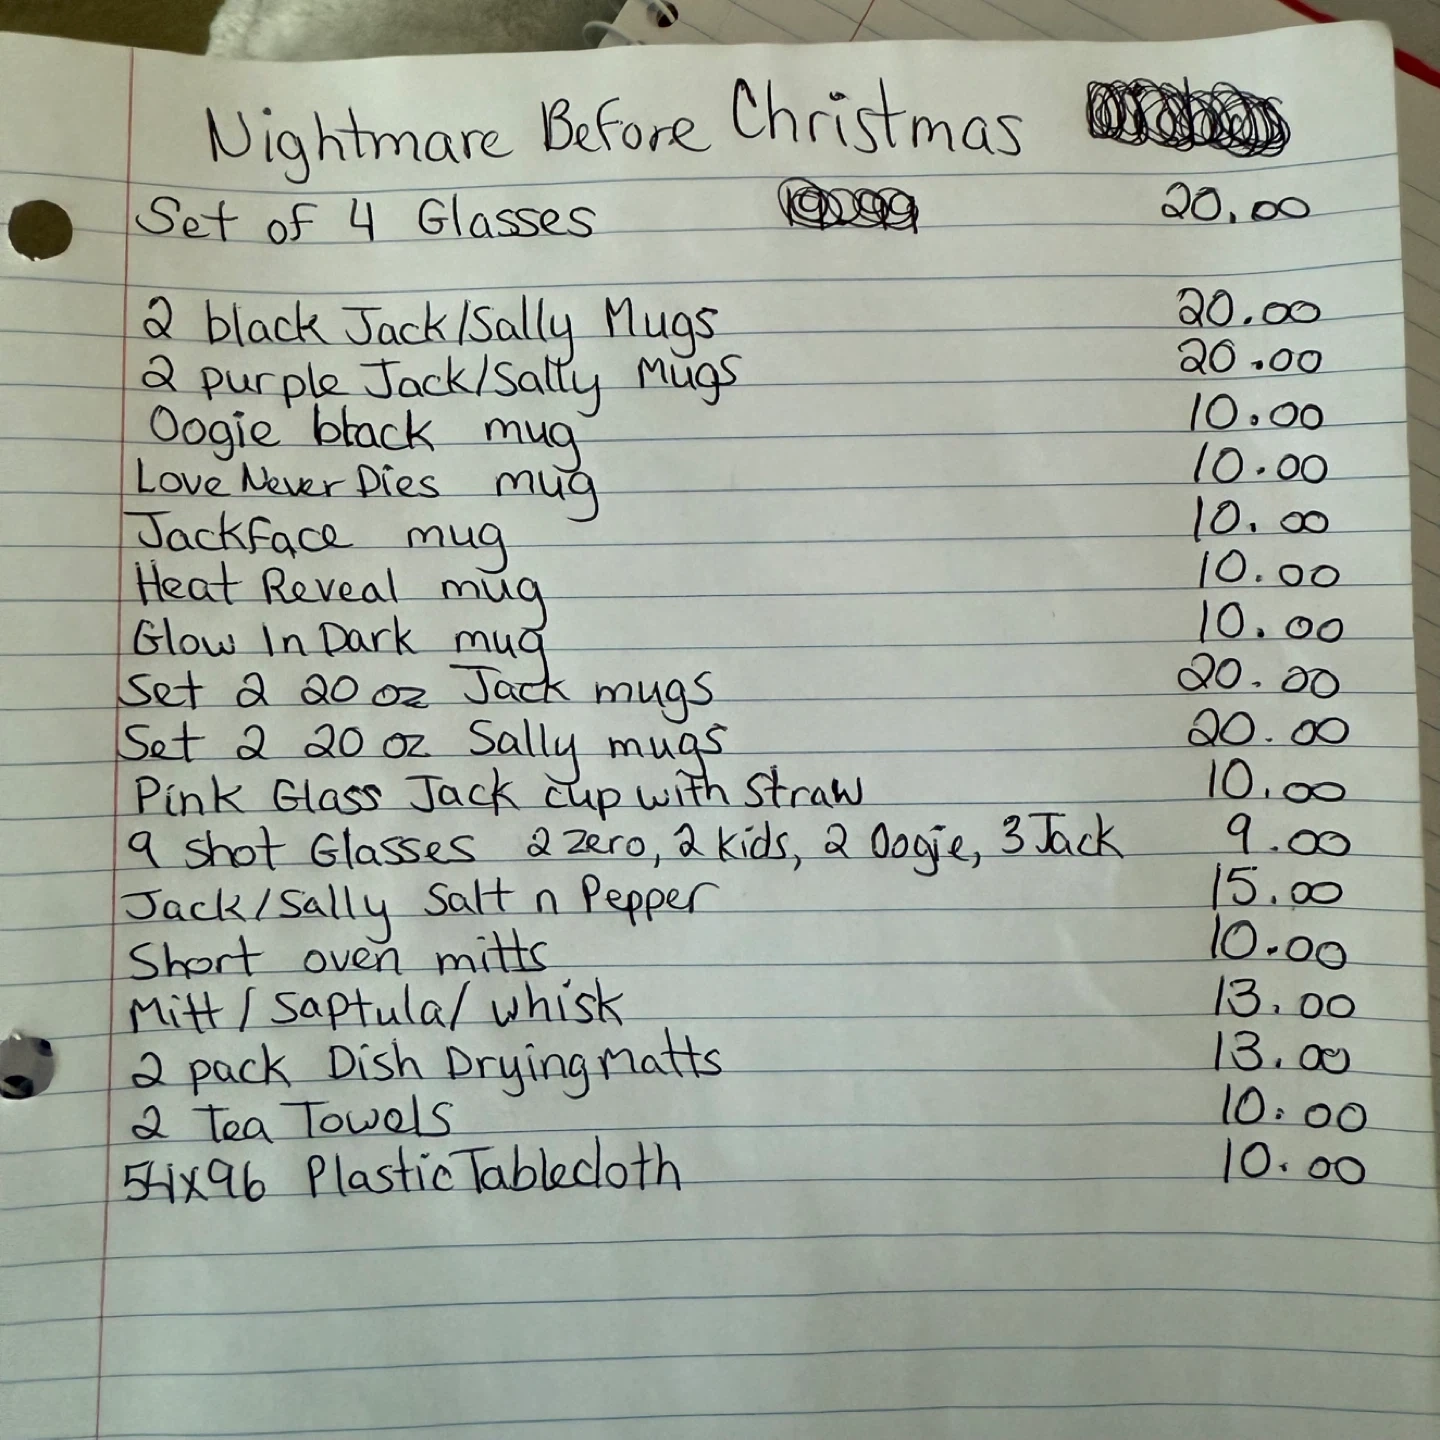 Nightmare Before Christmas
Set of 4 Glasses 20.00
2 black Jack/Sally Mugs 20.00
2 purple Jack/Sally Mugs 20.00
Oogie black mug 10.00
Love Never Dies mug 10.00
Jackface mug 10.00
Heat Reveal mug 10.00
Glow In Dark mug 10.00
Set 2 20 oz Jack mugs 20.00
Set 2 20 oz Sally mugs 20.00
Pink Glass Jack cup with straw 10.00
9 shot Glasses 2 zero, 2 kids, 2 Oogie, 3 Jack 9.00
Jack/Sally Salt n Pepper 15.00
Short oven mitts 10.00
Mitt/Saptula/whisk 13.00
2 pack Dish Drying Matts 13.00
2 Tea Towels 10.00
54x96 Plastic Tablecloth 10.00